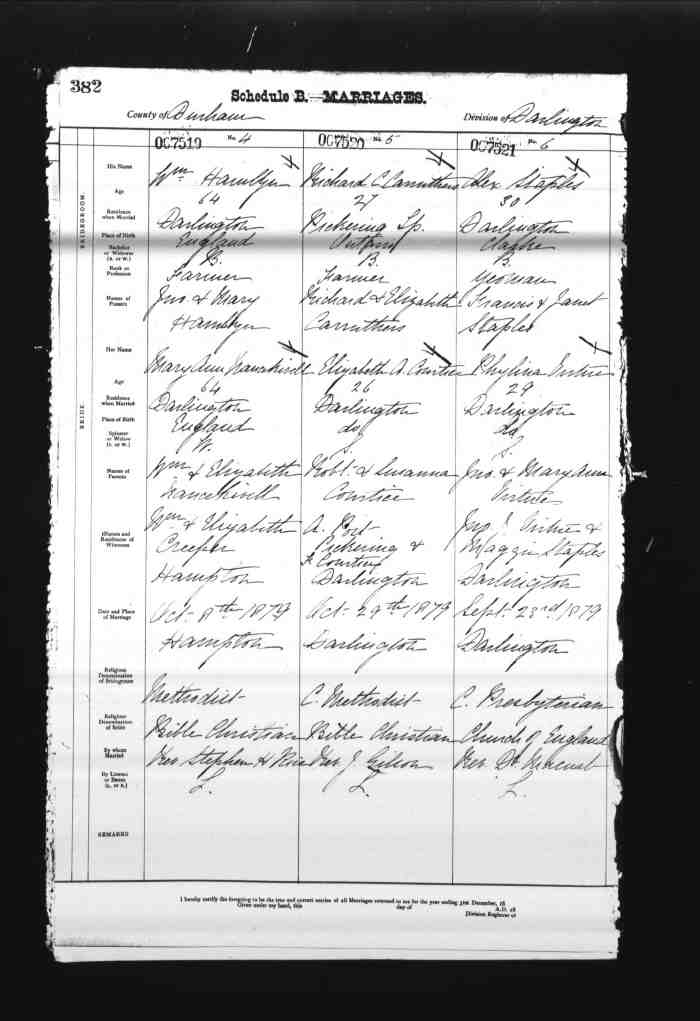 382
Schedule B.—MARRIAGES.
County of Durham
Division of Darlington
007519 No. 4
007520 No. 5
007521 No. 6
BRIDEGROOM.
His Name
Wm Hamblyn
Richard C Carruthers
Alex Staples
Age
64
27
30
Residence when Married
Darlington
Pickering Tp.
Darlington
Place of Birth
England
Ontario
Clarke
Bachelor or Widower (B. or W.)
B.
B.
B.
Rank or Profession
Farmer
Farmer
Yeoman
Names of Parents
Jno. & Mary
Hamblyn
Richard & Elizabeth
Carruthers
Francis & Janet
Staples
BRIDE.
Her Name
Mary Ann
Elizabeth A. Courtice
Age
64
26
29
Residence when Married
Darlington
Darlington
Darlington
Place of Birth
England
do
do
Spinster or Widow (S. or W.)
W.
S.
S.
Names of Parents
Wm & Elizabeth
Robt. & Susanna
Courtice
Jno. & Mary Ann
Virtue
Names and Residences of Witnesses
Wm & Elizabeth
Creeper
Hampton
A. Post
Pickering &
F Courtice
Darlington
Jno. J. Virtue &
Maggie Staples
Darlington
Date and Place of Marriage
Oct. 8th 1879
Hampton
Oct. 29th 1879
Darlington
Sept. 23rd 1879
Darlington
Religious Denomination of Bridegroom
Methodist
C. Methodist
C. Presbyterian
Religious Denomination of Bride
Bible Christian
Bible Christian
Church of England
By whom Married
Rev Stephen H Rice
Rev J.
Rev. Dr.
By License or Banns (L. or B.)
L.
L.
L.
REMARKS
I hereby certify the foregoing to be the true and correct entries of all Marriages returned to me for the year ending 31st December, 18
Given under my hand, this day of A.D. 18
Division Registrar of